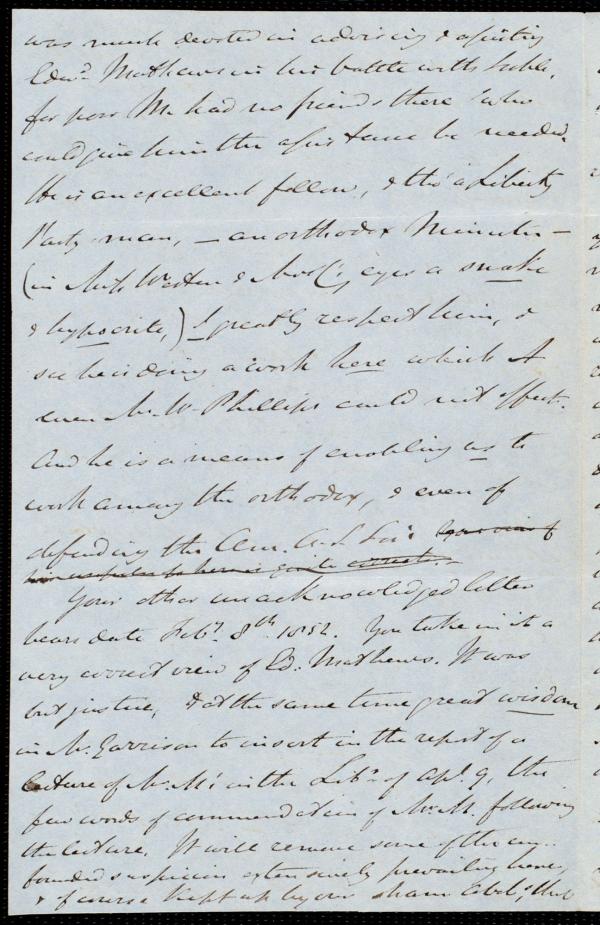 was much devoted in advising & assisting
Edwd. Mathews in his battle with Noble,
for poor M. had no friends there who
could give him the assistance he needed.
He is an excellent fellow, & tho' a Liberty
Party man, — an orthodox Minister —
(in Miss Weston & Mrs. C's eyes a snake
& hypocrite,) I greatly respect him, &
see he is doing a work here which
even Mr. W. Phillips could not effect.
And he is a means of enabling us to
work among the orthodox, & even of
defending the Am. A. S. Soc: your view of
his usefulness here is quite correct. —
Your other unacknowledged letter
bears date Feby. 8th. 1852. You take in it a
very correct view of Ed: Mathews. It was
but justice, & at the same time great wisdom
in Mr. Garrison to insert in the report of a
lecture of Mr. M's in the Libr. of Apl. 9, the
few words of commendation of Mr. M. following
the lecture. It will remove some of the un-
founded suspicion extensively prevailing here,
& of course kept up by our sham abol:s, that